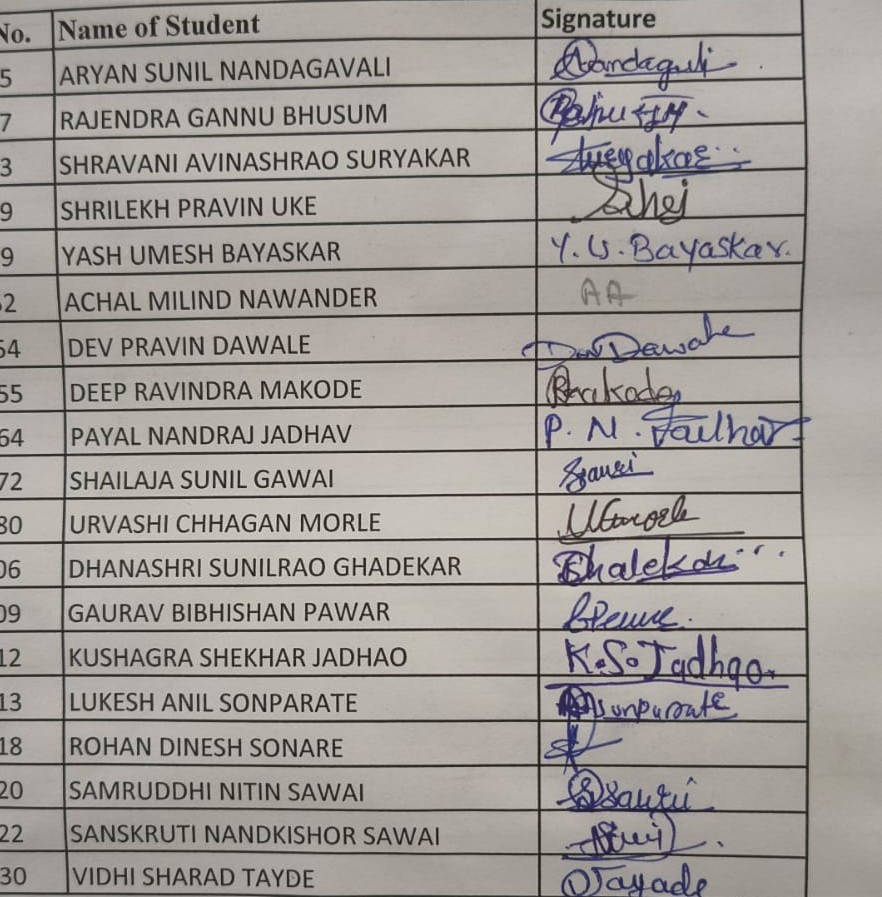 No. Name of Student Signature
5 ARYAN SUNIL NANDAGAVALI
7 RAJENDRA GANNU BHUSUM
3 SHRAVANI AVINASHRAO SURYAKAR
9 SHRILEKH PRAVIN UKE
9 YASH UMESH BAYASKAR Y. U. Bayaskar.
2 ACHAL MILIND NAWANDER AA
54 DEV PRAVIN DAWALE Dawale
55 DEEP RAVINDRA MAKODE
64 PAYAL NANDRAJ JADHAV P. N.
72 SHAILAJA SUNIL GAWAI
80 URVASHI CHHAGAN MORLE
06 DHANASHRI SUNILRAO GHADEKAR
09 GAURAV BIBHISHAN PAWAR
12 KUSHAGRA SHEKHAR JADHAO K.S. Jadhao.
13 LUKESH ANIL SONPARATE
18 ROHAN DINESH SONARE
20 SAMRUDDHI NITIN SAWAI
22 SANSKRUTI NANDKISHOR SAWAI
30 VIDHI SHARAD TAYDE